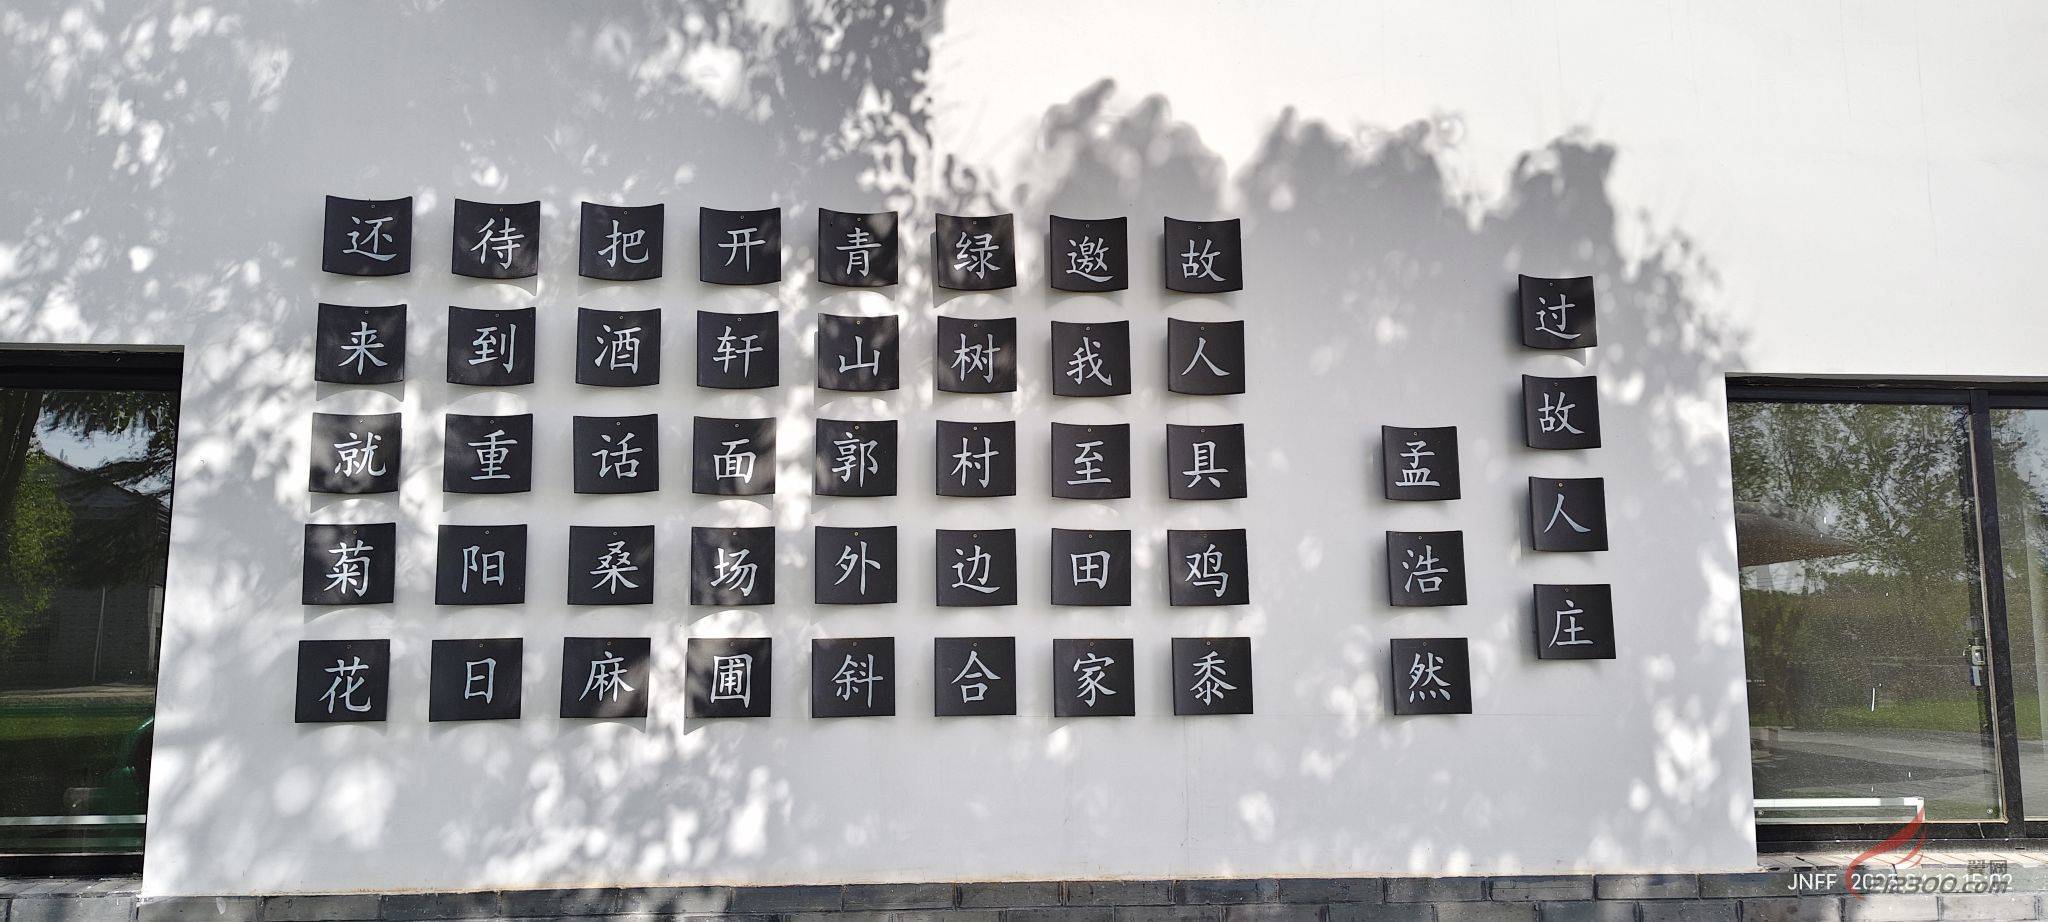 过故人庄
孟浩然
故人具鸡黍
邀我至田家
绿树村边合
青山郭外斜
开轩面场圃
把酒话桑麻
待到重阳日
还来就菊花
JNFF